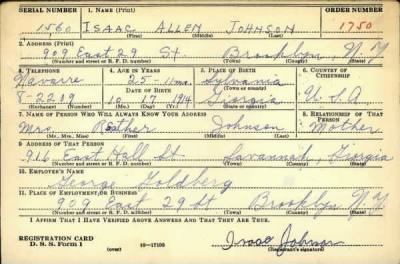 SERIAL NUMBER 1. NAME (Print) ORDER NUMBER
1560 ISAAC ALLEN JOHNSON 1750
(First) (Middle) (Last)
2. ADDRESS (Print)
909 East 29 St. Brooklyn N.Y.
(Number and street or R. F. D. number) (Town) (County) (State)
3. TELEPHONE 4. AGE IN YEARS 5. PLACE OF BIRTH 6. COUNTRY OF CITIZENSHIP
Navarre 25-11mo. Sylvania
DATE OF BIRTH (Town or county)
8-2219 10 17 1914 Georgia U.S.A
(Exchange) (Number) (Mo.) (Day) (Yr.) (State or country)
7. NAME OF PERSON WHO WILL ALWAYS KNOW YOUR ADDRESS 8. RELATIONSHIP OF THAT PERSON
Mrs. Johnson Mother
(Mr., Mrs., Miss) (First) (Middle) (Last)
9. ADDRESS OF THAT PERSON
916 East Hall St. Savannah, Georgia
(Number and street or R. F. D. number) (Town) (County) (State)
10. EMPLOYER'S NAME
George Goldberg
11. PLACE OF EMPLOYMENT OR BUSINESS
909 East 29 St Brooklyn N.Y.
(Number and street or R. F. D. number) (Town) (County) (State)
I AFFIRM THAT I HAVE VERIFIED ABOVE ANSWERS AND THAT THEY ARE TRUE.
REGISTRATION CARD
D. S. S. Form 1 (over) 16-17105 Isaac Johnson
(Registrant's signature)